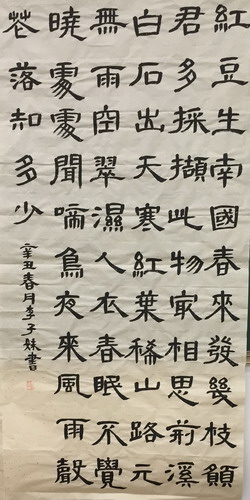 紅豆生南國春來發幾枝願
君多採擷此物冣相思荊溪
白石出天寒紅葉稀山路元
無雨空翠濕人衣春眠不覺
曉處處聞啼鳥夜來風雨聲
花落知多少
辛丑春月李子書